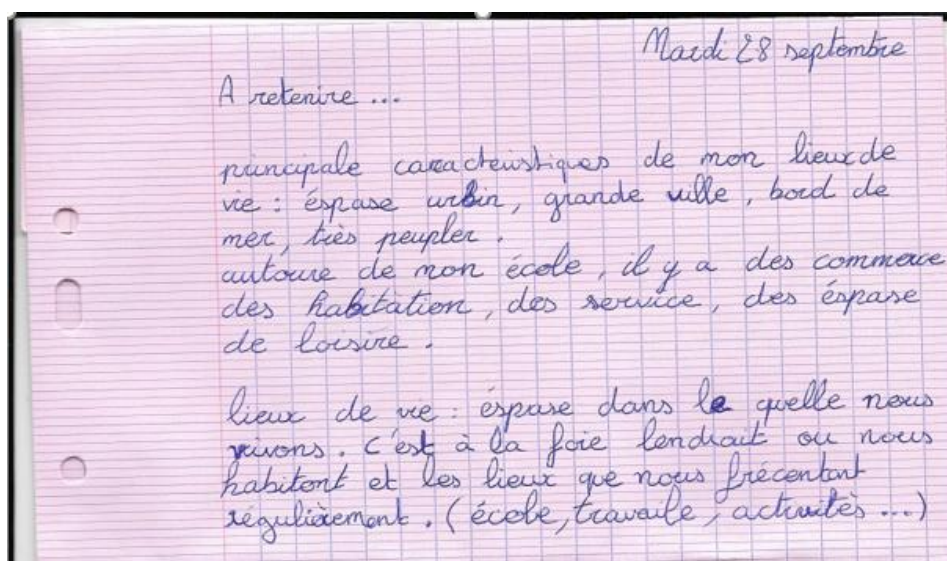 Mardi 28 septembre
A retenire ...
principale caracteristiques de mon lieux de
vie : éspase urbin, grande ville, bord de
mer, très peupler.
autoure de mon école, il y a des commerce
des habitation, des service, des éspase
de loisire.
lieux de vie : éspase dans le quelle nous
vivons. C'est à la foie lendrait ou nous
habitont et les lieux que nous frécentont
régulièrement. (école, travaile, activités ...)